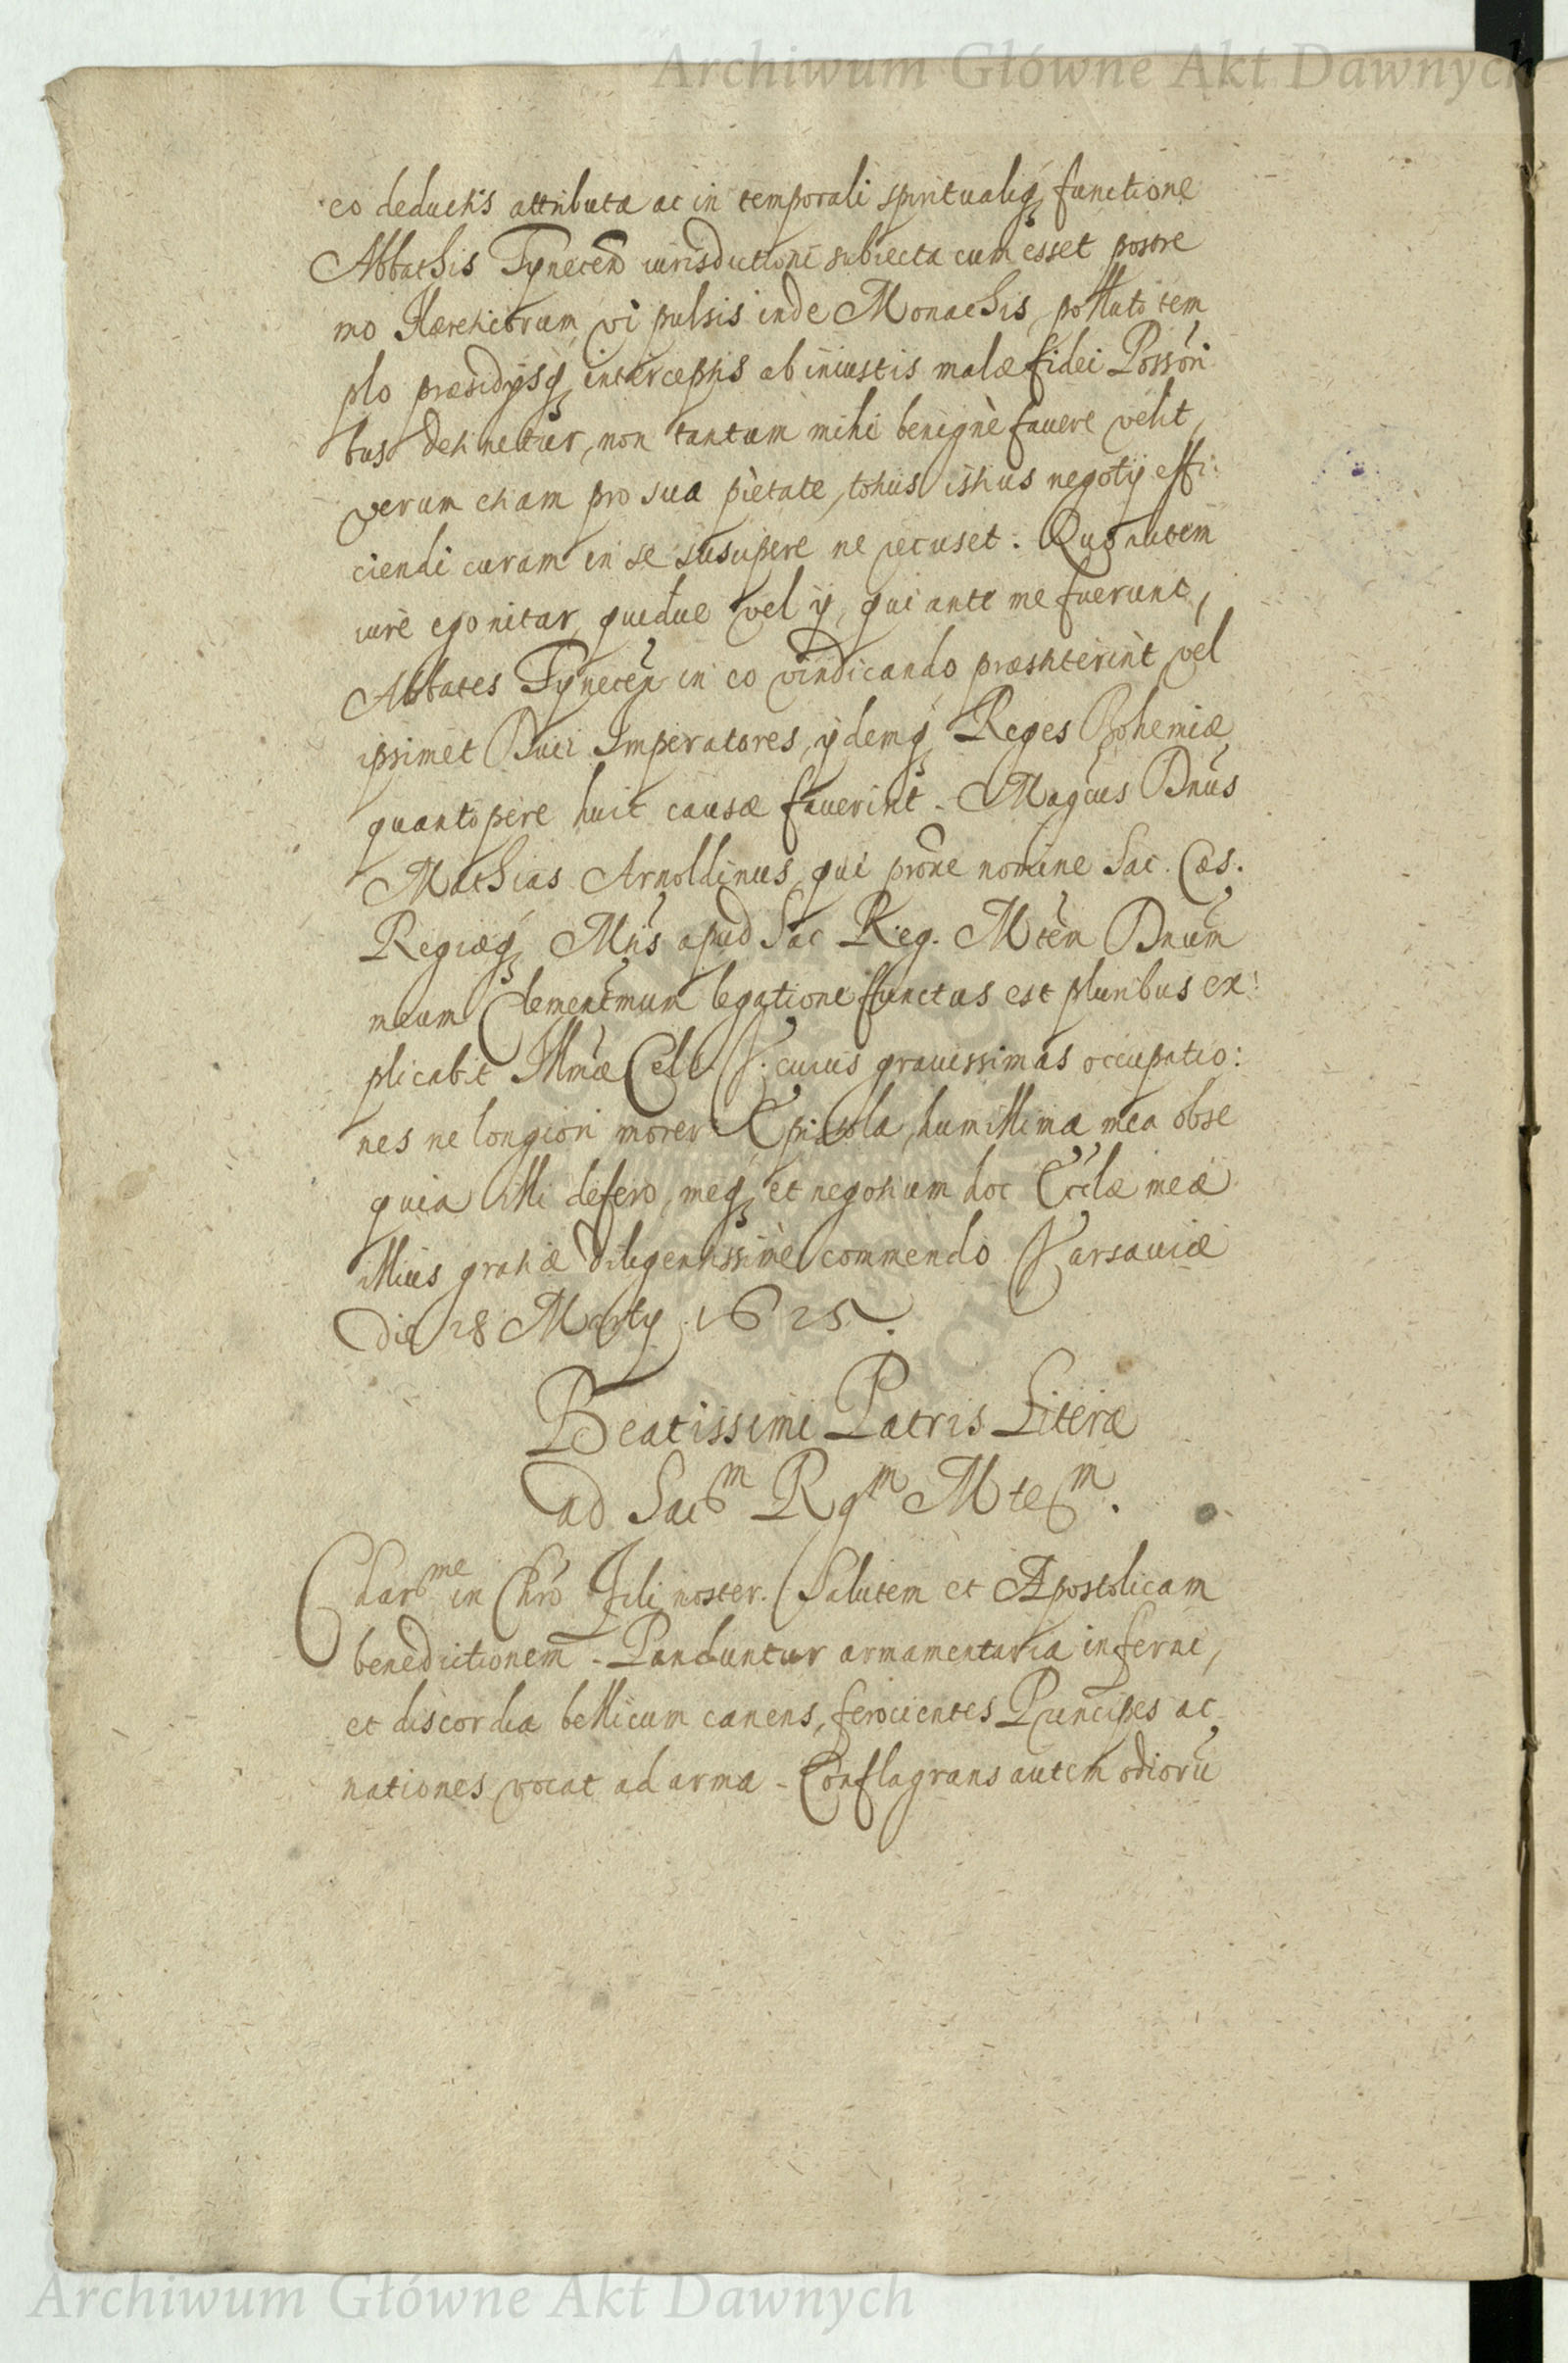 Archiwum Główne Akt Dawnych
eo deductis attributa ac in temporali spiritualiq; functione
Abbathis Tynecen iurisdictioni subiecta cum esset postre
mo Hæreticorum vi pulsis inde Monachis, polluto tem
plo præsidijsq; interceptis ab iniustis malæ fidei Possori
bus detinetur, non tantum mihi benignè fauere velit,
verum etiam pro sua pietate, totius istius negotij effi:
ciendi curam in se suscipere ne recuset. Quo autem
iure ego nitar, quidue vel ij, qui ante me fuerunt,
Abbates Tynecen in eo vindicando præstiterint vel
ipsimet Diui Imperatores, ijdemq; Reges Bohemiæ
quantopere huic causæ fauerint. Magcus Dnus
Mathias Arnoldinus, qui prone nomine Sac. Cæs.
Regiæq; Mtis apud Sac Reg. Mtem Dnum
meum Clementmum legatione functus est pluribus ex:
plicabit Illmæ Cels. V. cuius grauissimas occupatio:
nes ne longiori morer Epistola, humillima mea obse
quia illi defero, meq; et negotium hoc Ecclæ meæ
illius gratiæ diligentissimè commendo Varsauiæ
Die 28 Martij 1625.
Beatissimi Patris Literæ
ad Sacm Rgm Mtem.
Charme in Chro Fili noster. Salutem et Apostolicam
benedictionem. Panduntur armamentaria inferni,
et discordia bellicum canens, ferocientes Principes ac
nationes vocat ad arma. Conflagrans autem odioru
Archiwum Główne Akt Dawnych